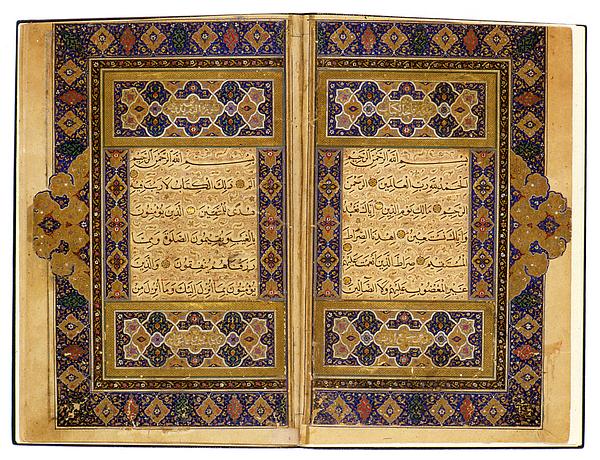 بسم الله الرحمن الرحيم
الحمد لله رب العالمين الرحمن
الرحيم مالك يوم الدين اياك نعبد
واياك نستعين اهدنا الصراط
المستقيم صراط الذين انعمت عليهم
غير المغضوب عليهم ولا الضالين
بسم الله الرحمن الرحيم
الم ذلك الكتاب لا ريب فيه
هدى للمتقين الذين يؤمنون
بالغيب ويقيمون الصلوة ومما
رزقناهم ينفقون والذين
يؤمنون بما انزل اليك وما انزل من